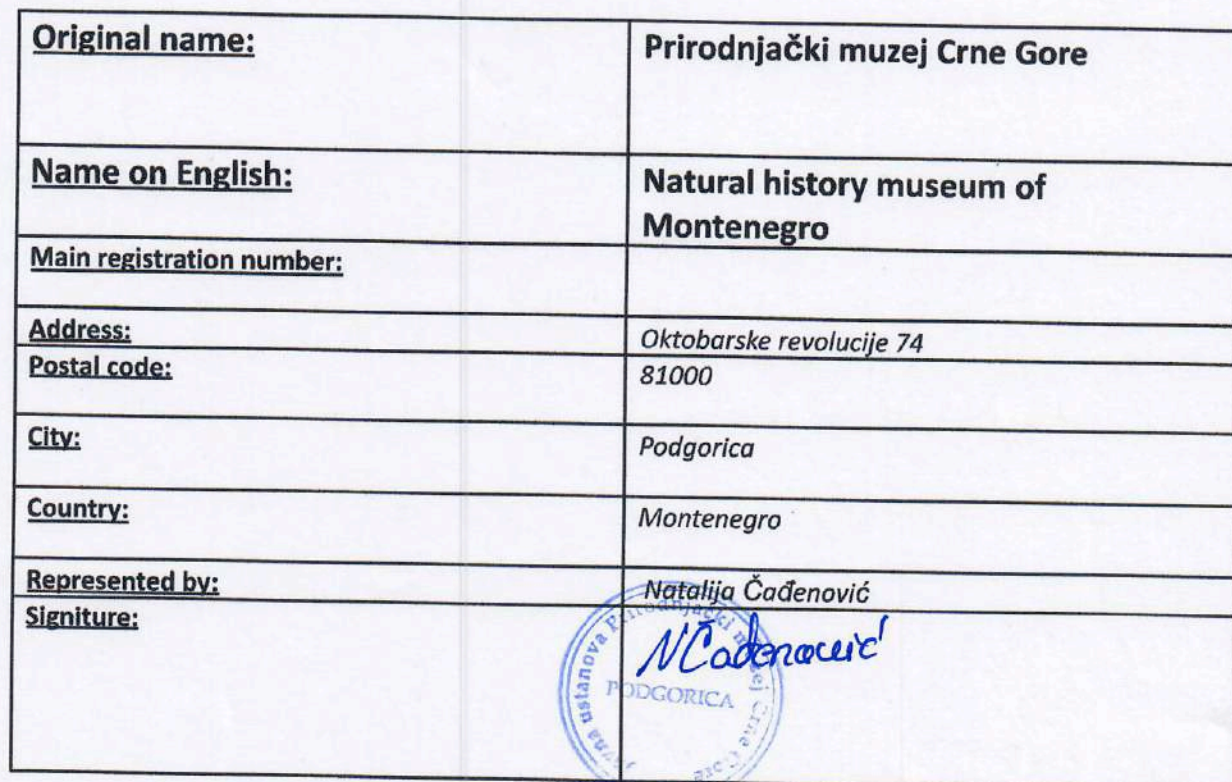 Original name:
Prirodnjački muzej Crne Gore
Name on English:
Natural history museum of
Montenegro
Main registration number:
Address:
Oktobarske revolucije 74
Postal code:
81000
City:
Podgorica
Country:
Montenegro
Represented by:
Natalija Čađenović
Signiture:
NČađenović
ustanova Prirodnjački muzej Crne Gore
PODGORICA